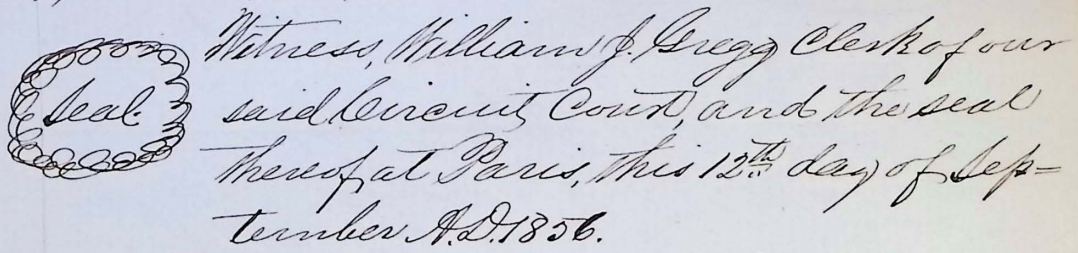 Witness, William J. Gregg Clerk of our
Seal.
said Circuit Court, and the seal
thereof, at Paris, this 12th day of Sep=
tember A.D. 1856.